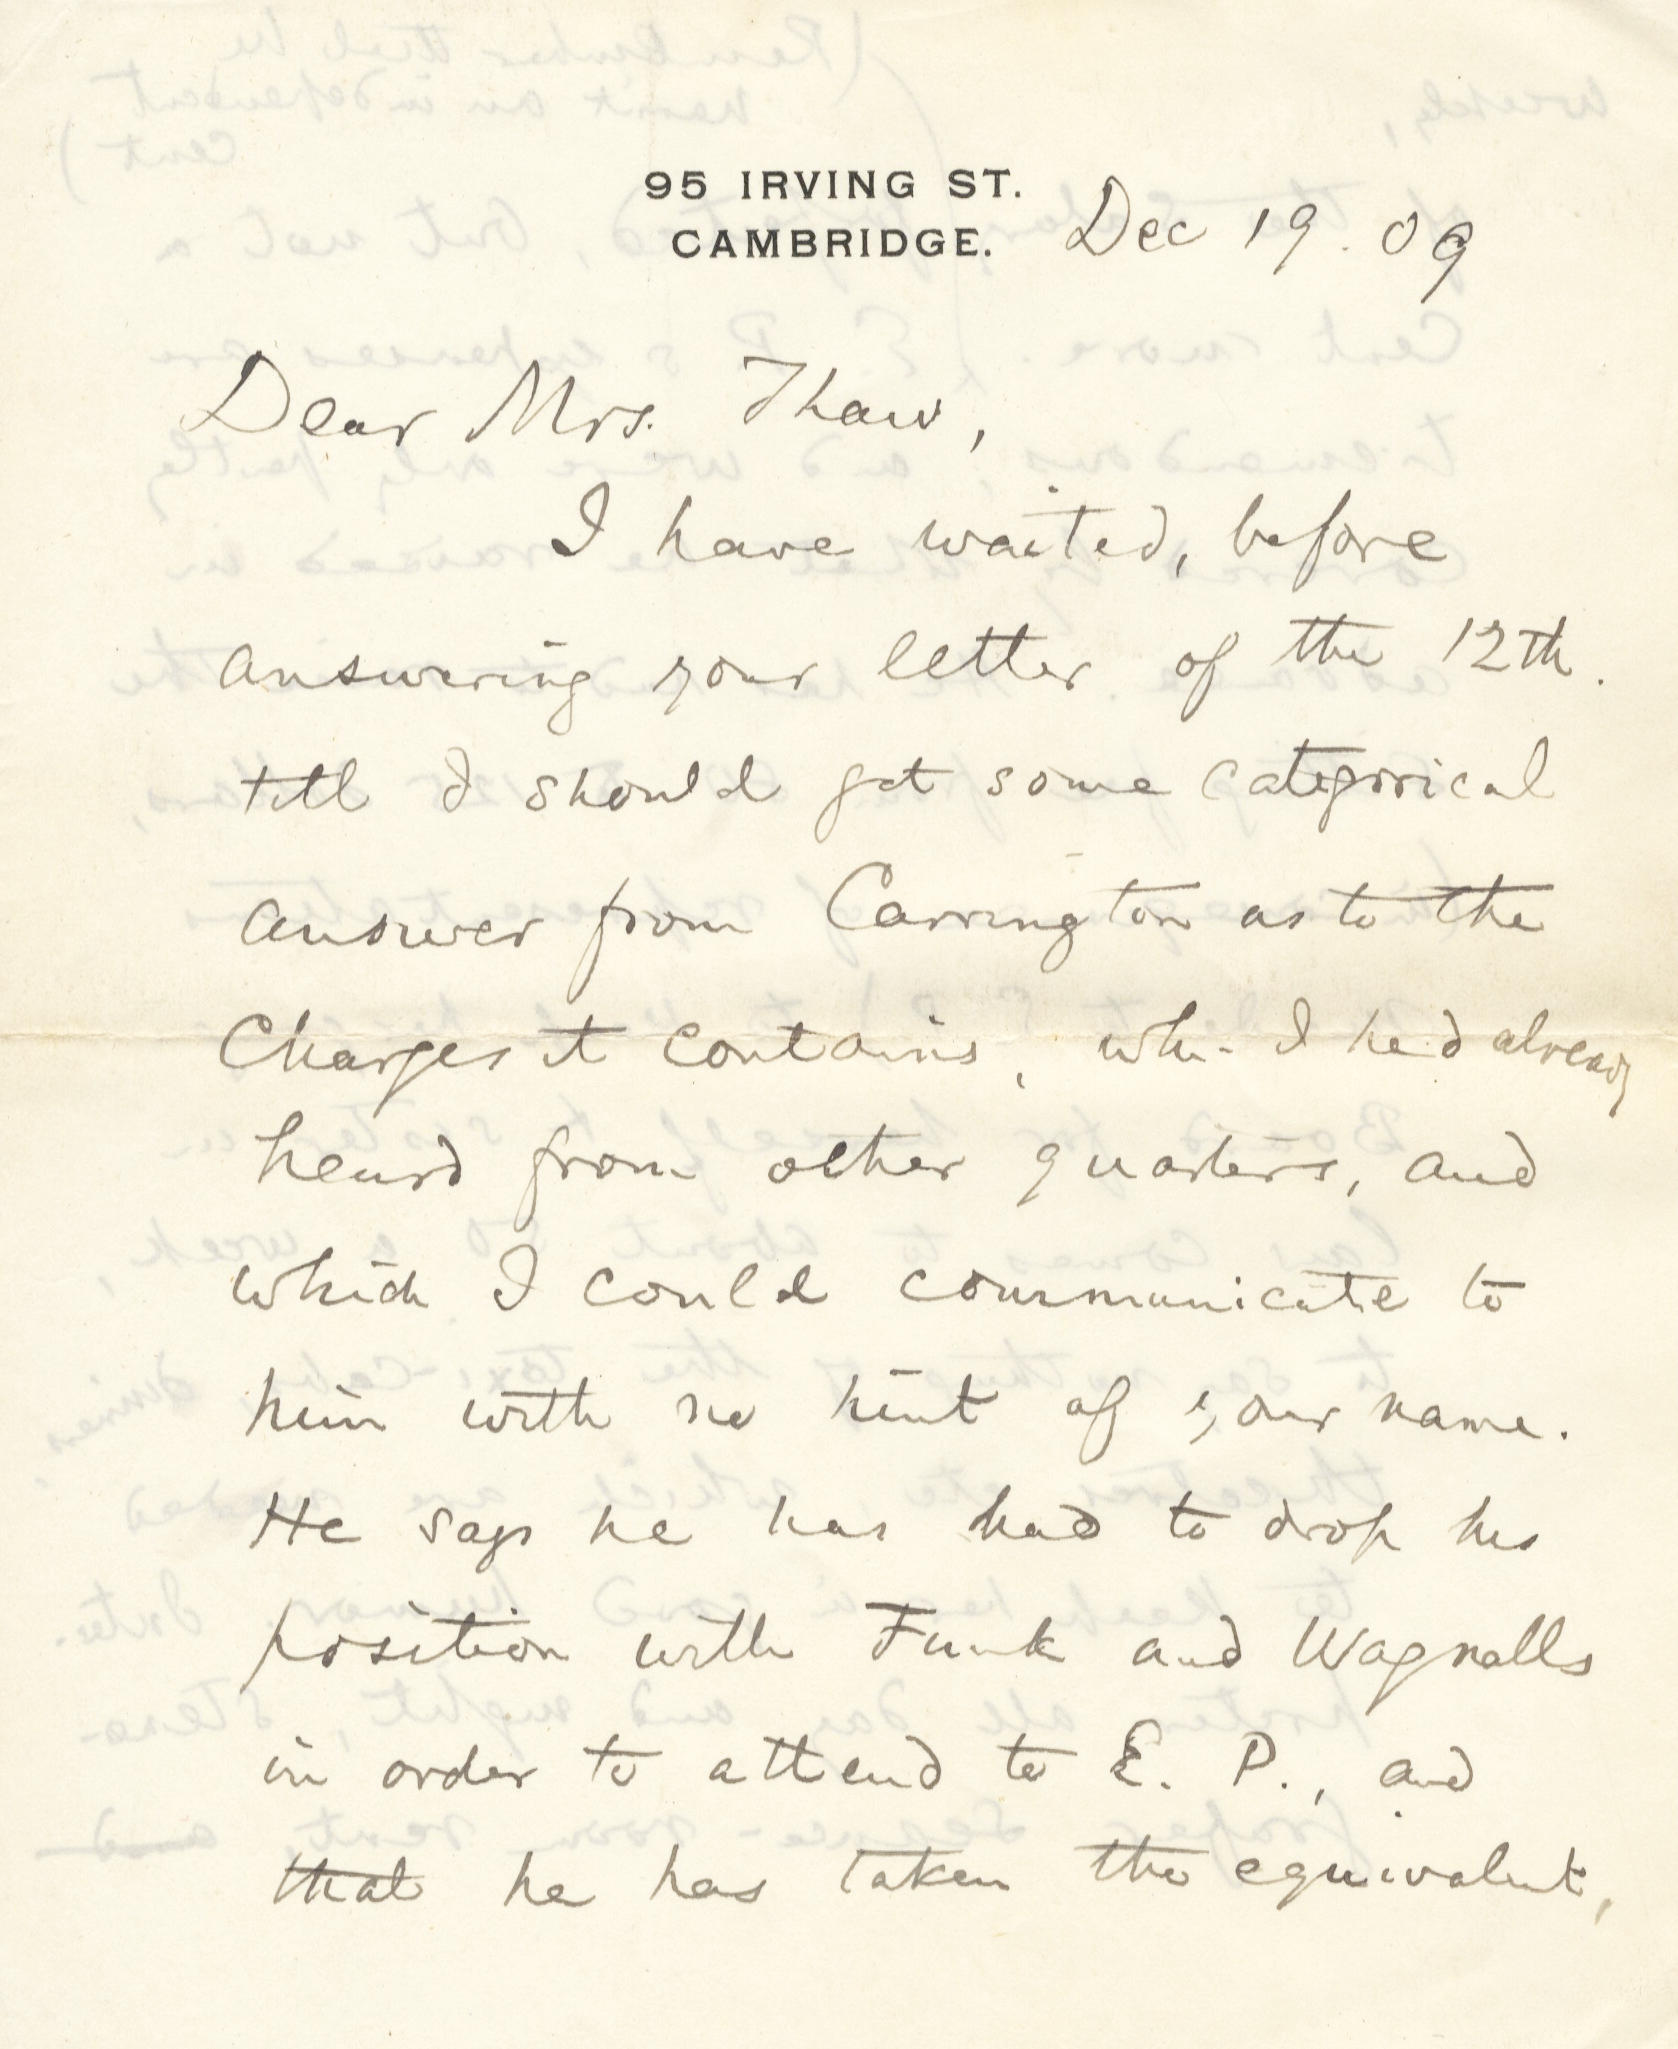 95 IRVING ST.
CAMBRIDGE.
Dec 19. 09
Dear Mrs. Thaw,
I have waited, before
answering your letter of the 12th.
till I should get some categorical
answer from Carrington as to the
Charges it contains, wh. I had already
heard from other quarters, and
which I could communicate to
him with no hint of your name.
He says he has had to drop his
position with Funk and Wagnalls
in order to attend to E. P., and
that he has taken the equivalent,